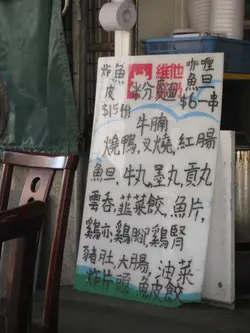 炸魚皮
$15份
維他奶
米分麵
咖喱魚旦
$6一串
牛腩
燒鴨,叉燒,紅腸
魚旦,牛丸,墨丸,貢丸
雲吞,韮菜餃,魚片,
雞亦,雞腳,雞腎
豬肚,大腸,油菜
炸片頭,魚皮餃